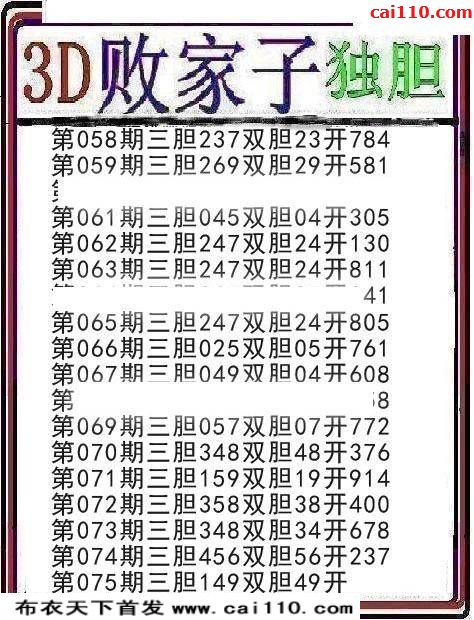 cai110.com
3D败家子独胆
第058期三胆237双胆23开784
第059期三胆269双胆29开581
第061期三胆045双胆04开305
第062期三胆247双胆24开130
第063期三胆247双胆24开811
41
第065期三胆247双胆24开805
第066期三胆025双胆05开761
第067期三胆049双胆04开608
第 8
第069期三胆057双胆07开772
第070期三胆348双胆48开376
第071期三胆159双胆19开914
第072期三胆358双胆38开400
第073期三胆348双胆34开678
第074期三胆456双胆56开237
第075期三胆149双胆49开
布衣天下首发 www.cai110.com